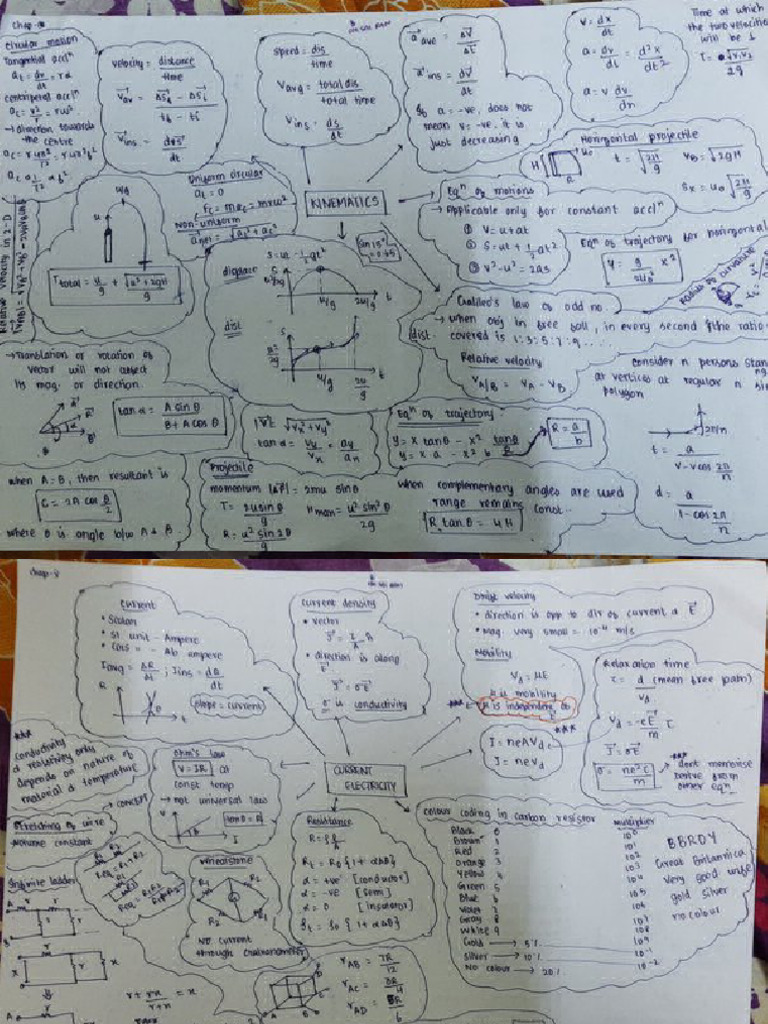 Circular motion
Tangential accl^n
a_t = dv/dt = rα
centripetal accl^n
a_c = v²/r = rω²
→ direction towards
the centre
velocity = distance/time
speed = dis/time
v_avg = total dis/total time
v_ins = ds/dt
a_ave = ΔV/Δt
a_ins = dv/dt
If a = -ve, does not
mean v = -ve. it is
just decreasing
v = dx/dt
a = dv/dt = d²x/dt²
a = v dv/dx
Time at which
the two velocities
will be ⊥
Uniform circular
a_t = 0
F_c = ma_c = mrω²
Non-uniform
a_net = √(a_t² + a_c²)
KINEMATICS
Horizontal projectile
t = √(2H/g)
v_B = √(2gH)
S_x = u_0 √(2H/g)
Eq^n of motions
→ Applicable only for constant accl^n
① V = u + at
② S = ut + 1/2 at²
③ v² - u² = 2as
Eq^n of trajectory for horizontal
y = g/2u_0² x²
Radius of curvature
Relative velocity in 2-D
T_total = u/g + √(u² + 2gH)/g
S = ut - 1/2 gt²
displace
dist
u/g
2u/g
Galileo's law of odd no
→ When obj in free fall, in every second the ratio
dist. covered is 1:3:5:7:9.....
Relative velocity
V_A/B = V_A - V_B
consider n persons stan
at vertices at regular n si
polygon
2π/n
t = a/(v - v cos 2π/n)
d = a/(1 - cos 2π/n)
→ Translation or rotation of
vector will not affect
its mag. or direction.
tan α = A sin θ/(B + A cos θ)
√(v_x² + v_y²)
tan α = v_y/v_x = a_y/a_x
Eq^n of trajectory
y = x tan θ - x² tan θ/R
y = x a - x² b
R = a/b
when A = B, then resultant is
C = 2A cos θ/2
where θ is angle b/w A & B
Projectile
momentum |ΔP| = 2mu sin θ
T = 2u sin θ/g
H_max = u² sin² θ/2g
R = u² sin 2θ/g
when complementary angles are used
range remains const.
R tan θ = 4H
Current
• Scalar
• SI unit Ampere
• CGS = - Ab ampere
I avg = ΔQ/Δt ; I ins = dQ/dt
slope = current
Current density
• vector
• direction is along E
J = σE
σ is conductivity
Drift velocity
• direction is opp to dir of current & E
• Mag. very small = 10⁻⁴ m/s
Mobility
V_d = μE
μ is mobility
μ is independent of
Relaxation time
τ = d (mean free path)/v_d
V_d = -eE/m τ
J = σE
σ = ne²τ/m
→ dont memorise
derive from
other eq^n
I = neAV_d
J = neV_d
conductivity
& resistivity only
depends on nature of
material & temperature
Ohm's law
V = IR
const temp
→ not universal law
tan θ = R
CURRENT
ELECTRICITY
Stretching of wire
volume constant
→ concept
Infinite ladder
Wheatstone
No current
through Galvanometer
Resistance
R_t = R_0 {1 + αΔθ}
α = +ve [conductor]
α = -ve [semi]
α = 0 [insulator]
S_t = S_0 {1 + αΔθ}
Colour coding in carbon resistor
multiplier
Black 0 10⁰
Brown 1 10¹
Red 2 10²
Orange 3 10³
Yellow 4 10⁴
Green 5 10⁵
Blue 6 10⁶
Violet 7 10⁷
Gray 8 10⁸
White 9 10⁹
Gold → 5% 10⁻¹
Silver → 10% 10⁻²
No colour → 20%
BBROY
Great Britannica
very good wife
gold silver
no colour
r + rx/(r + x) = x
r_AB = 7R/12
r_AC = 3R/4
r_AD = 5R/6